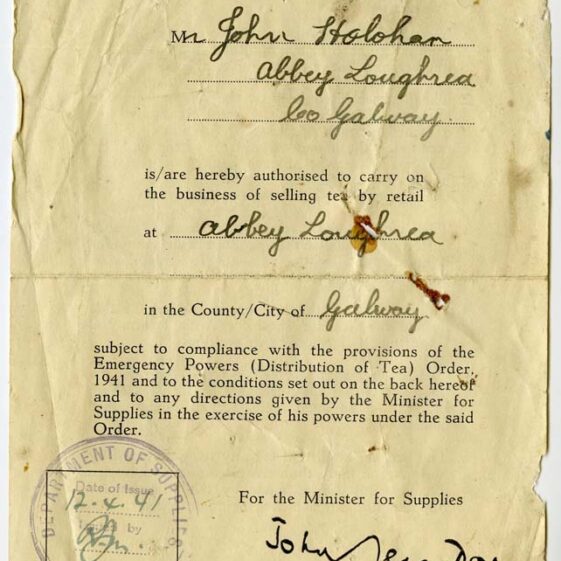 Mr John Holohan
Abbey Loughrea
Co Galway
is/are hereby authorised to carry on
the business of selling tea by retail
at Abbey Loughrea
in the County/City of Galway
subject to compliance with the provisions of the
Emergency Powers (Distribution of Tea) Order,
1941 and to the conditions set out on the back hereof
and to any directions given by the Minister for
Supplies in the exercise of his powers under the said
Order.
DEPARTMENT OF SUPPLIES
Date of Issue
12.4.41
Issued by
For the Minister for Supplies
John